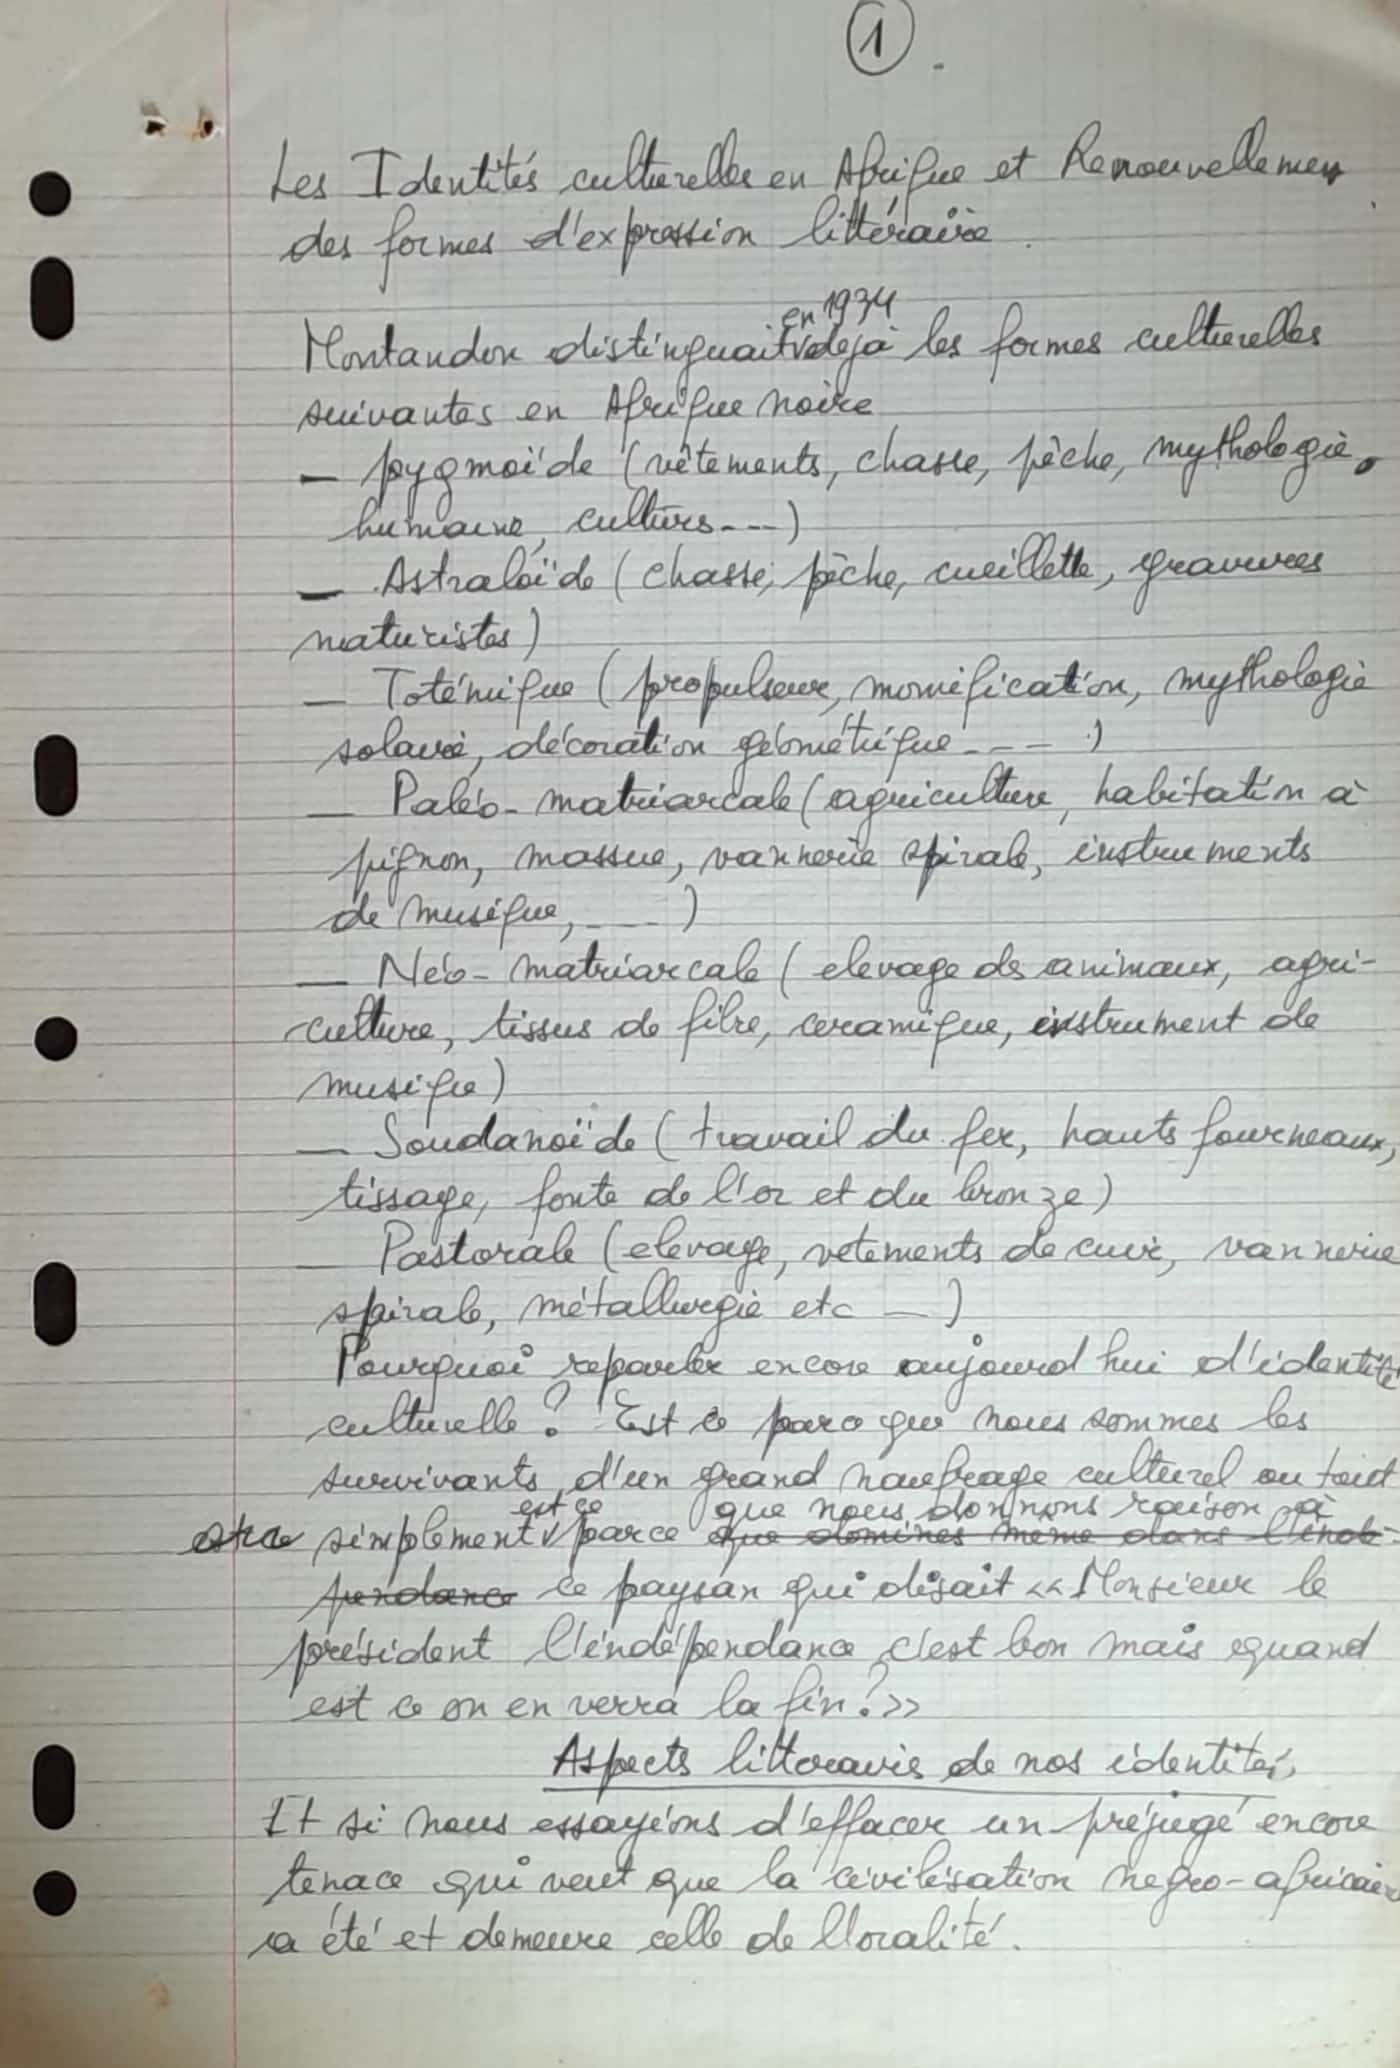 1
Les Identités culturelles en Afrique et Renouvellemen
des formes d'expression littéraire.
en 1934
Montandon distinguait déjà les formes culturelles
suivantes en Afrique noire
— pygmoïde (vêtements, chasse, pêche, mythologie
humaine, cultures---)
— Astraloïde (chasse, pêche, cueillette, gravures
naturistes)
— Totémique (propulseur, momification, mythologie
solaire, décoration géométrique ---)
— Paléo-matriarcale (agriculture, habitation à
pignon, massue, vannerie spirale, instruments
de musique, ---)
— Néo-matriarcale (elevage des animaux, agri-
culture, tissus de fibre, ceramique, instrument de
musique)
— Soudanoïde (travail du fer, hauts fourneaux,
tissage, fonte de l'or et du bronze)
— Pastorale (elevage, vetements de cuir, vannerie
spirale, métallurgie etc —)
Pourquoi reparler encore aujourd hui d'identité
culturelle? Est ce parce que nous sommes les
survivants d'un grand naufrage culturel ou tout
est ce que nous donnons raison à
simplement parce que domines même dans l'indé-
pendance ce paysan qui disait << Monsieur le
président l'indépendance c'est bon mais quand
est ce on en verra la fin? >>
Aspects litteraires de nos identités
Et si nous essayions d'effacer un préjugé encore
tenace qui veut que la civilisation negro-africaine
a été et demeure celle de l'oralité.